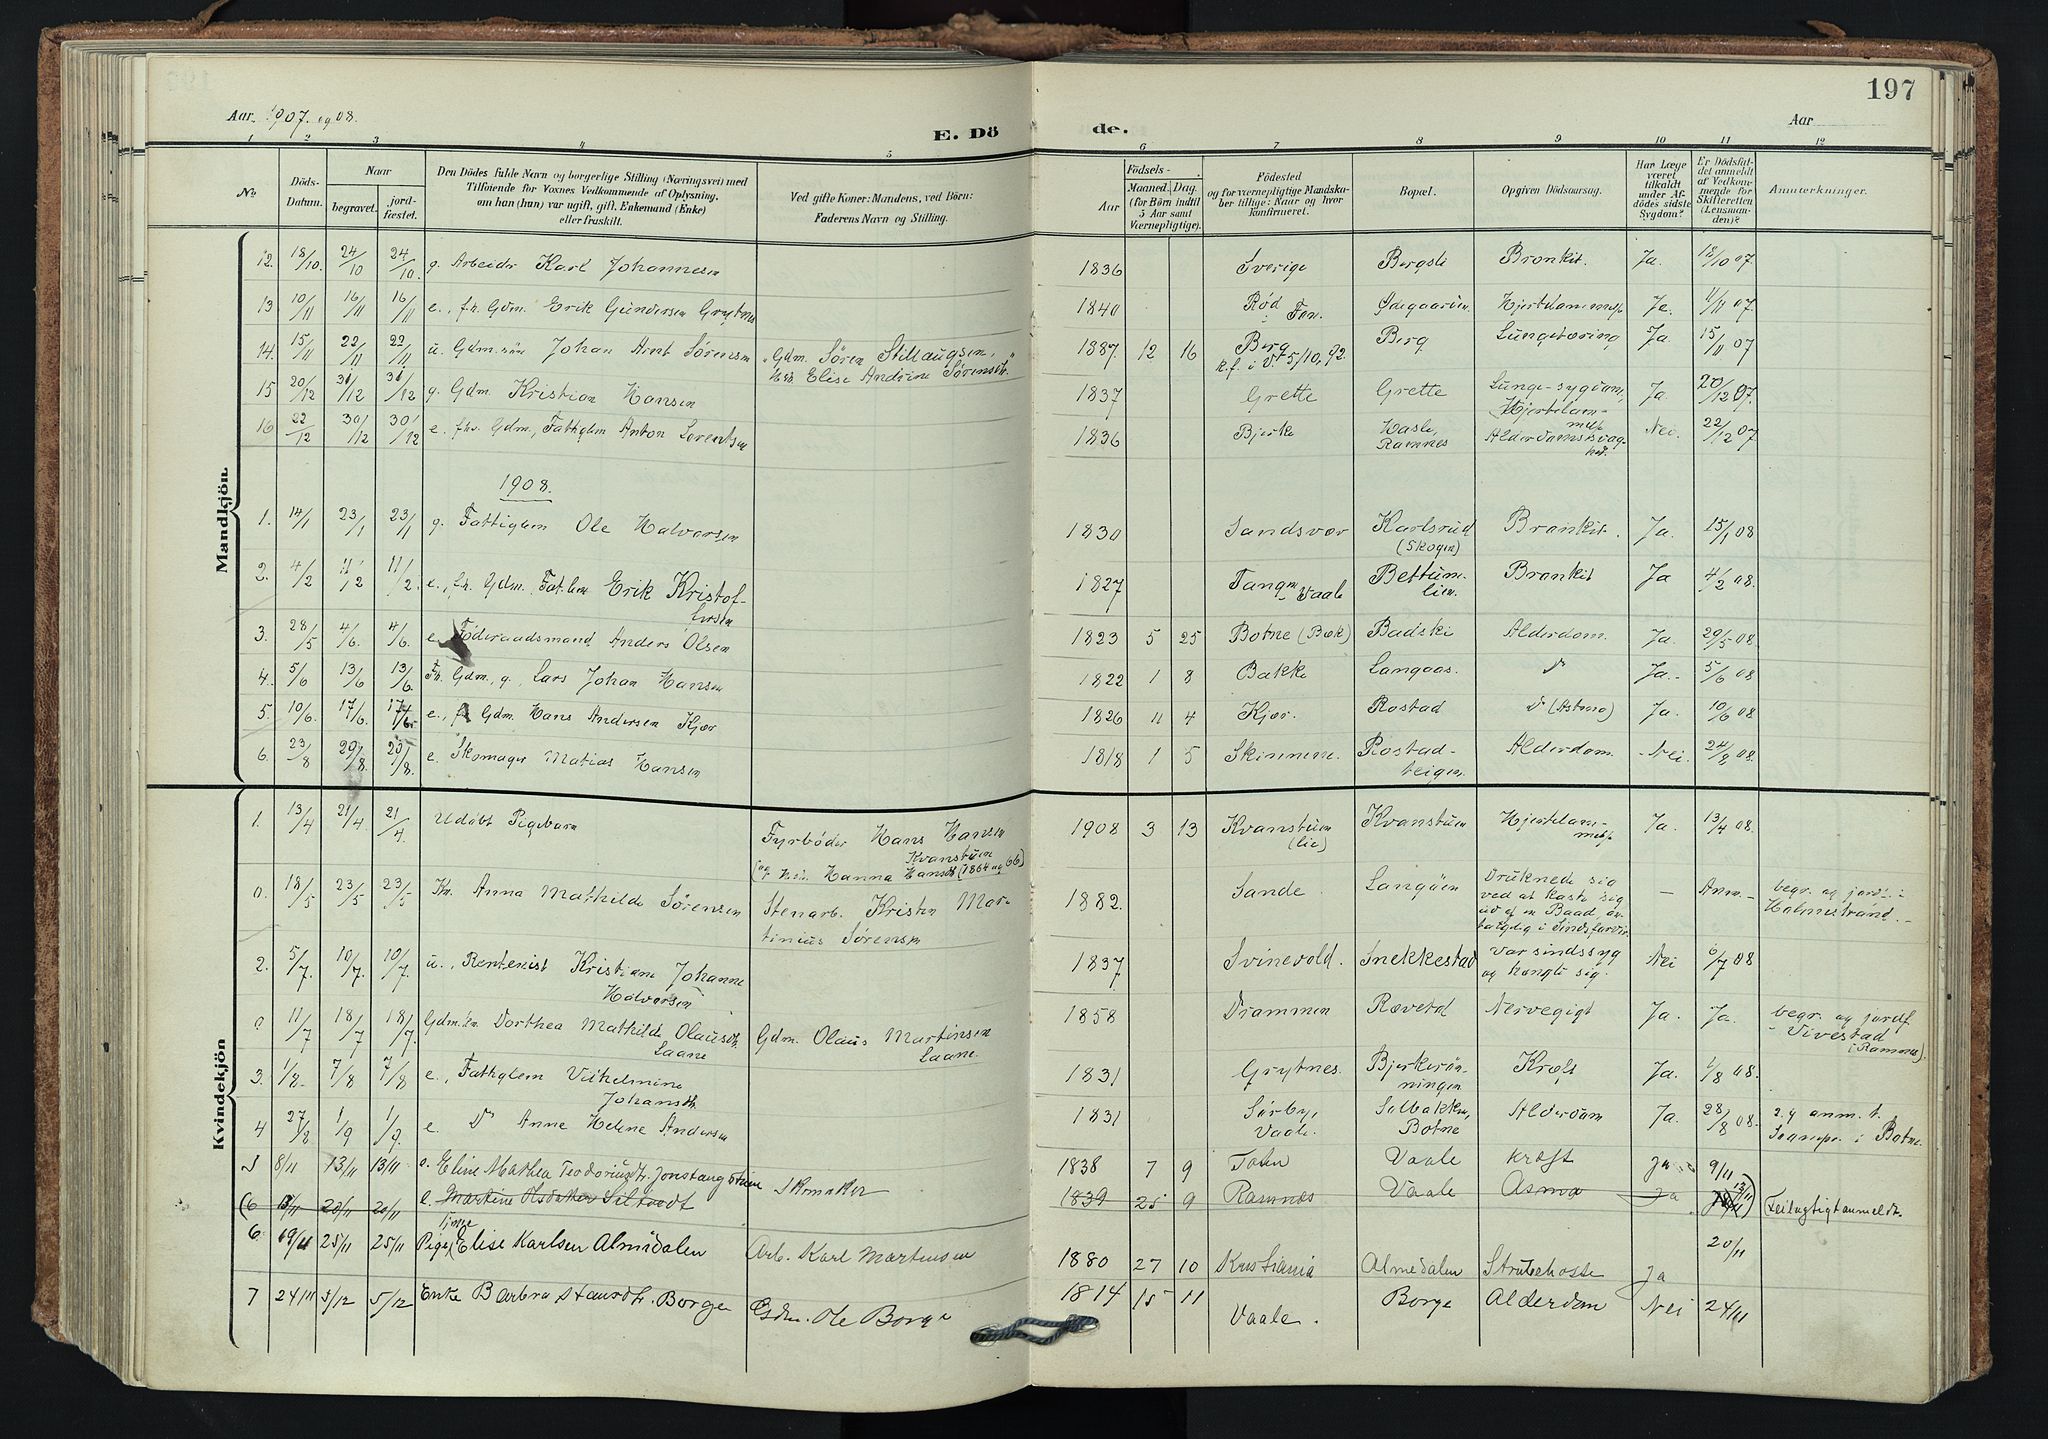 197
Aar 1907 og 08.
E. Dö
de.
Aar
1 2 3 4 5 6 7 8 9 10 11 12
No
Döds-Datum.
Naar
begravet.
jord-fæstet.
Den Dödes fulde Navn og borgerlige Stilling (Næringsvei) med
Tilföiende for Voxnes Vedkommende af Oplysning,
om han (hun) var ugift, gift, Enkemand (Enke)
eller fraskilt.
Ved gifte Koner: Mandens, ved Börn:
Faderens Navn og Stilling.
Födsels-
Aar
Maaned. Dag.
(for Börn indtil
5 Aar samt
Værnepligtige).
Födested
og for værnepligtige Mandska-
ber tillige: Naar og hvor
konfirmeret.
Bopæl.
Opgiven Dödsaarsag.
Har Læge
været
tilkaldt
under Af-
dödes sidste
Sygdom?
Er Dödsfal-
det anmeldt
af Vedkom-
mende for
Skifteretten
(Lensman-
den)?
Anmærkninger.
Mandkjön.
12. 18/10. 24/10 24/10 g. Arbeider Karl Johannesen 1836 Sverige Bergsli Bronkit. Ja. 18/10 07.
13 10/11 16/11 16/11 e., fh. Gdm. Erik Gundersen Grytnes 1840 Rød i Fon. Ødegaarden Hjertelammelse Ja. 11/11 07.
14. 15/11 22/11 22/11 u. Gdm.søn Johan Arnt Sørensen Gdm. Søren Stillaugsen, 1887. 12 16 Berg Berg Lungetæring Ja 15/11 07
Elise Andrine Sørensdtr. k.f. i V. 5/10, 92.
15 20/12 31/12 31/12 g. Gdm. Kristian Hansen 1837 Grette Grette Lunge-sygdom, Ja. 20/12 07.
Hjertelam-melse
16 22/12 30/12 30/12 e. fhv. Gdm., Fattiglem Anton Lorentsen 1836 Bjerke Hasle, Ramnes Alderdomssvag-hed. Nei. 22/12 07
1908.
1. 14/1 23/1 23/1 g. Fattiglem Ole Halvorsen 1830 Sandsvær Karlsrud Bronkit. Ja. 15/1 08
(Skogen)
2. 4/2 11/2 11/2 e., fh. Gdm., Fat.lem Erik Kristof-fersen 1827 Tangen Vaale Bettum-lien. Bronkit Ja 4/2 08.
3. 28/5 4/6. 4/6. e. Føderaadsmand Anders Olsen 1823 5 25 Botne (Bæk) Badski Alderdom. Ja. 29/5 08.
4. 5/6 13/6 13/6. Fh. Gdm., g. Lars Johan Hansen 1822 1 8 Bakke Langaas. Do Ja. 5/6 08
5. 10/6. 17/6. 17/6. e., fh Gdm. Hans Andersen Kjær 1826 11 4 Kjær. Rostad Do (Astma) Ja. 10/6 08.
6. 23/8 29/8. 29/8. e. Skomager Matias Hansen 1818 1 5 Skimmene. Rostad-teigen. Alderdom. Nei. 24/8 08.
Kvindekjön
1. 13/4 21/4 21/4 Udøbt Pigebarn Fyrbøder Hans Hansen 1908 3 13 Kvanstuen Kvanstuen Hjertelam-melse Ja. 13/4 08.
Kvanstuen (lie)
(og Hanna Hansdtr (1864 og 66)
0. 18/5 23/5 23/5 Kn. Anna Mathilde Sørensen Stenarb. Kristen Mar-tinius Sørensen 1882. Sande. Langøen Druknede sig – Anm. – begr. og jordf. i
ved at kaste sig Holmestrand.
ud af en Baad, an-
tagelig i Sindsforvir.
2. 5/7. 10/7. 10/7. u., Rentenist Kristiane Johanne Halvorsen 1837 Svinevold. Snekkestad Var sindssyg Nei 6/7 08
og hængte sig.
0 11/7 18/7 18/7. Gdm.kn. Dorthea Mathilde Olausdtr. Saane Gdm. Olaus Martinsen Saane. 1858 Drammen Rævetd Nervegigt Ja. Ja. begr. og jordf.
Vivestad
(Ramnes).
3. 1/8. 7/8 7/8 e., Fattiglem Vilhelmine Johansdtr. 1831 Grytnes. Bjerkerøn-ningen Kræft Ja. 1/8 08.
4 27/8 1/9 1/9. e. Do Anne Helene Andersen 1831 Sørby, Vaale. Solbakken, Botne Alderdom Ja. 28/8 08.
Sognepr. i Botne.
5 8/11 13/11 13/11 e. Eline Mathea Teodoriusdtr. Jonstang Skomaker 1838 7 9 Vaale kræft Ja 9/11
(6 20/11 20/11 e. Martine 1839 25 9 Ramnæs Vaale Asma Ja 13/11) Feilagtigt anmeldt.
6. 19/11 25/11 25/11 Pige, Elise Karlsen Almedalen Arb. Karl Martinsen 1880 27 10 Kristiania Almedalen Strubehoste Ja 20/11
7 24/11 5/12 5/12 Enke Barbra Borge Gdm. Ole Borge 1814 15 11 Vaale. Borge Alderdom Nei 24/11